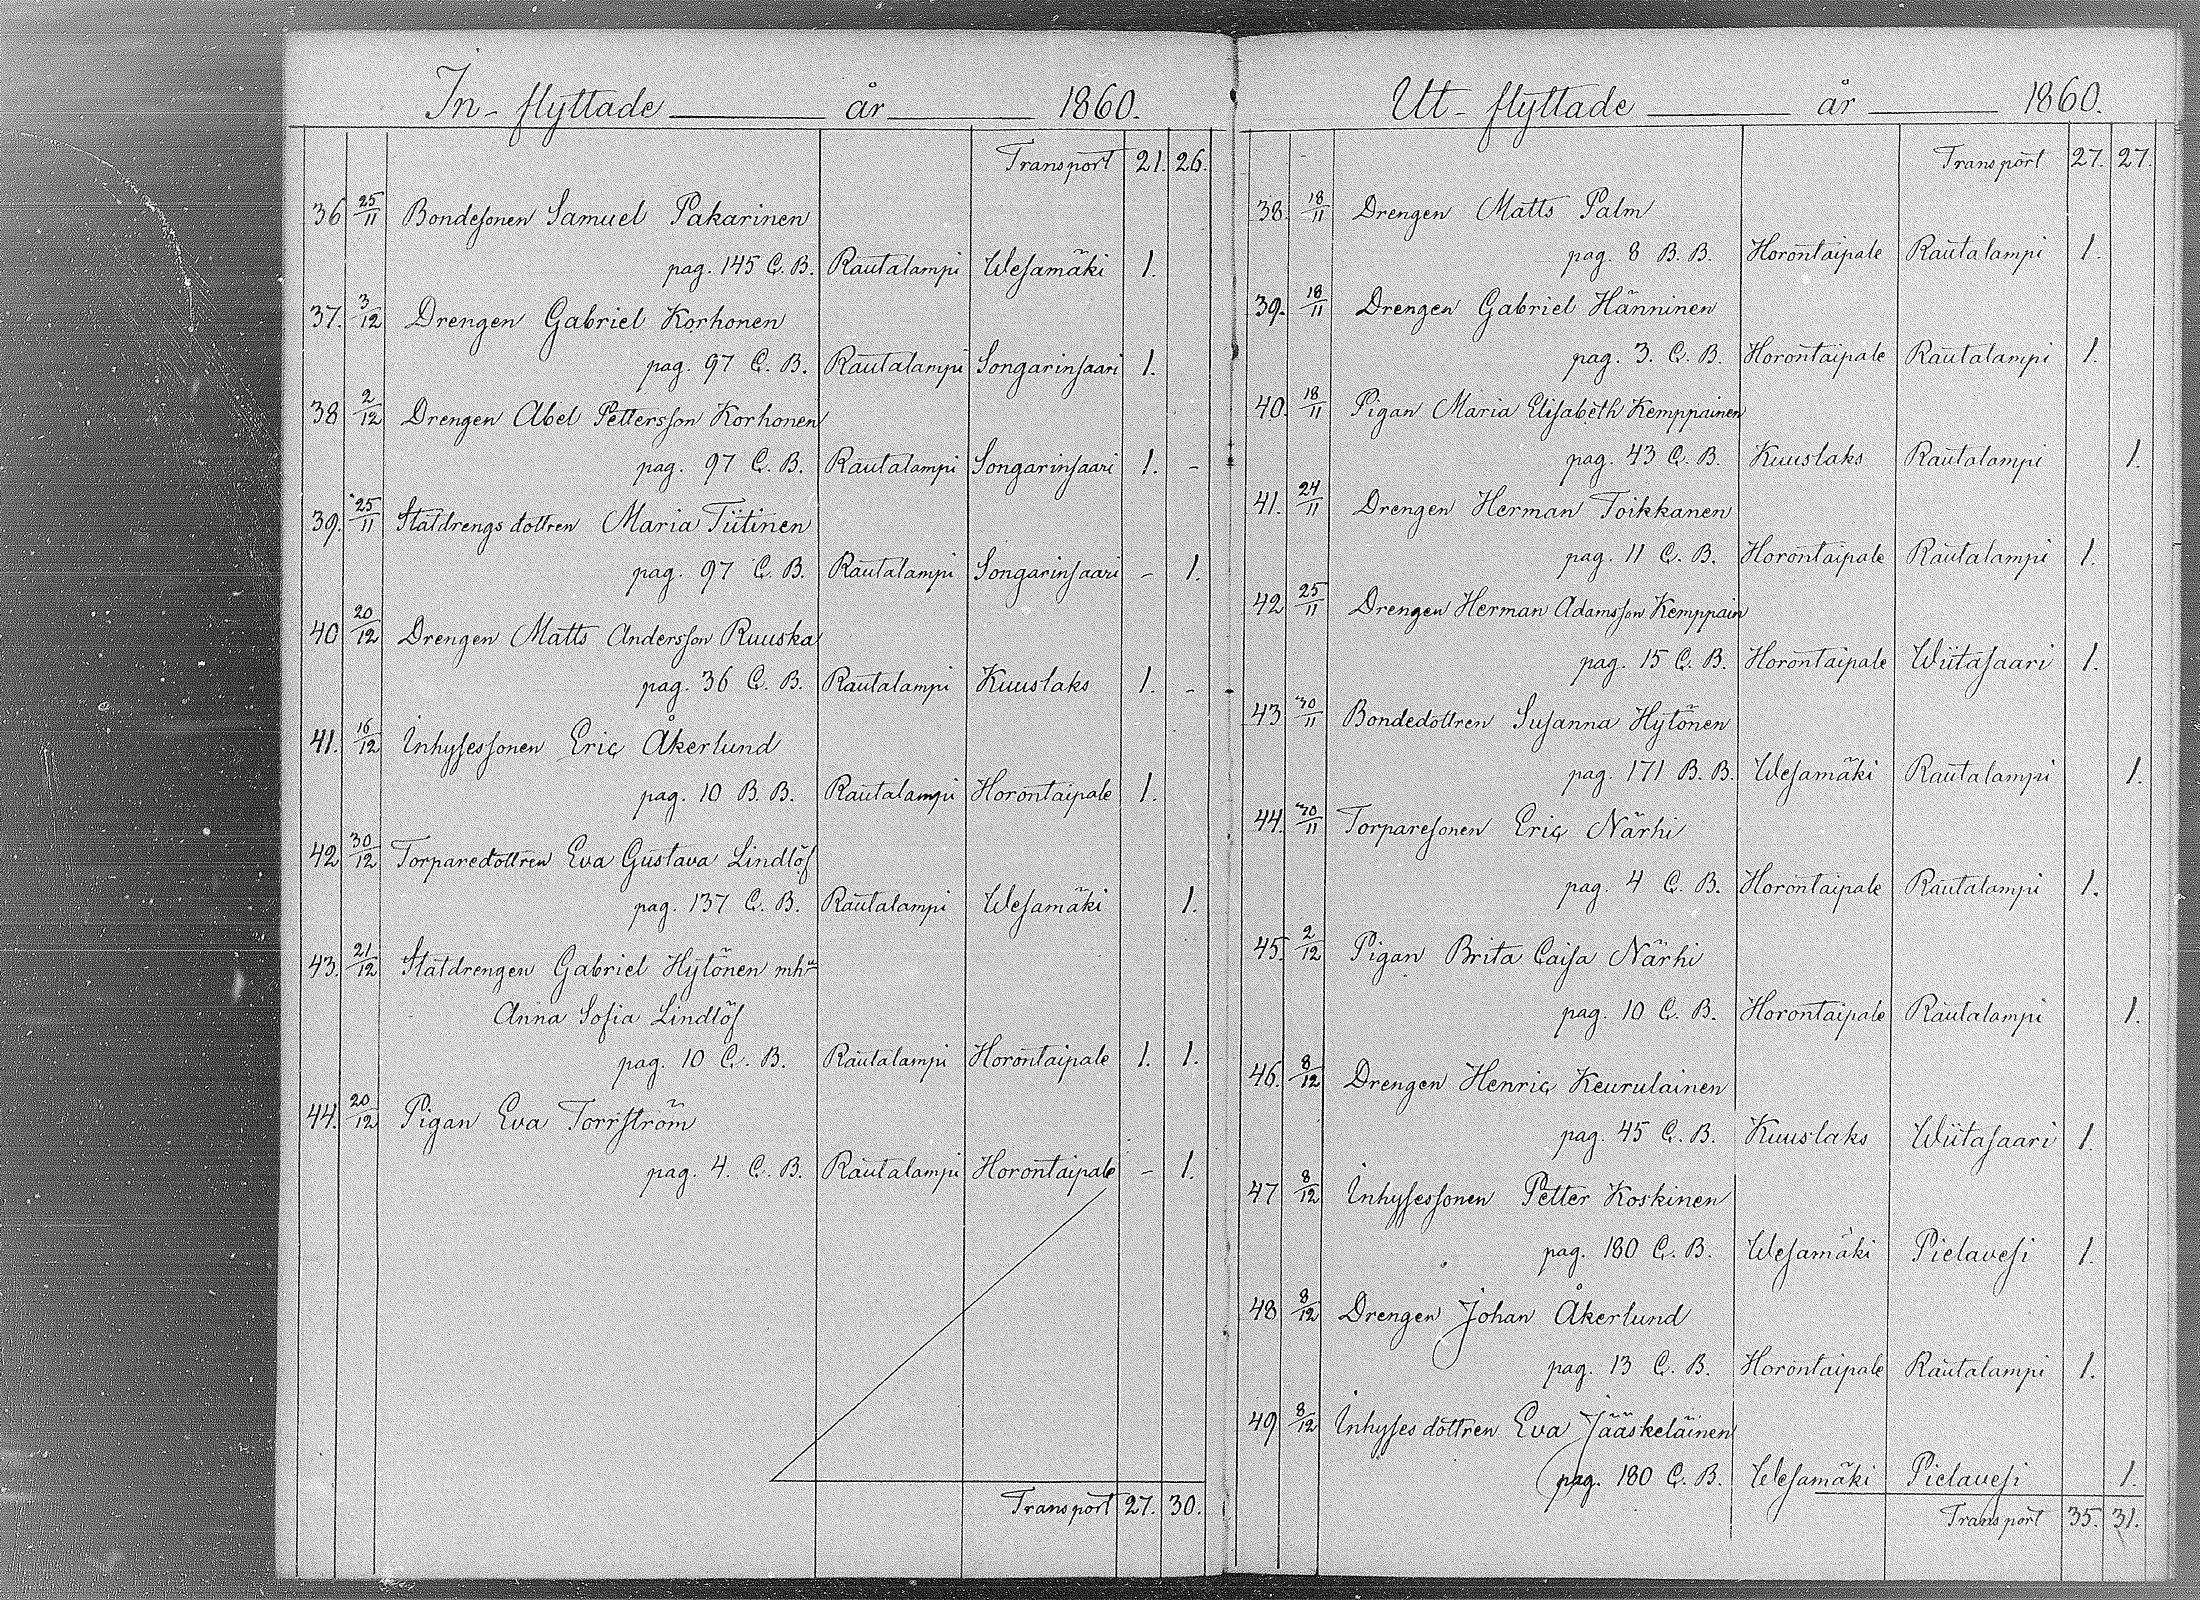 In-flyttade år 1860.
Transport 21. 26.
36 25/11 Bondesonen Samuel Pakarinen
pag. 145 C. B. Rautalampi Wesamäki 1.
37. 3/12 Drengen Gabriel Korhonen
pag. 97 C. B. Rautalampi Songarinsaari 1.
38 2/12 Drengen Abel Pettersson Korhonen
pag. 97 C. B. Rautalampi Songarinsaari 1. -
39. 25/11 Statdrengsdottren Maria Tiitinen
pag. 97 C. B. Rautalampi Songarinsaari - 1.
40 20/12 Drengen Matts Andersson Ruuska
pag. 36 C. B. Rautalampi Kuuslaks 1. -
41. 16/12 Inhysessonen Eric Åkerlund
pag. 10 B. B. Rautalampi Horontaipale 1.
42 30/12 Torparedottren Eva Gustava Lindlöf
pag. 137 C. B. Rautalampi Wesamäki 1.
43. 21/12 Statdrengen Gabriel Hytönen mhu
Anna Sofia Lindlöf
pag. 10 C. B. Rautalampi Horontaipale 1. 1.
44. 20/12 Pigan Eva Torrström
pag. 4. C. B. Rautalampi Horontaipale - 1.
Transport 27. 30.
Ut-flyttade år 1860.
Transport 27. 27.
38. 18/11 Drengen Matts Palm
pag. 8 B. B. Horontaipale Rautalampi 1.
39. 18/11 Drengen Gabriel Hänninen
pag. 3. C. B. Horontaipale Rautalampi 1.
40. 18/11 Pigan Maria Elisabeth Kemppainen
pag. 43 C. B. Kuuslaks Rautalampi 1.
41. 24/11 Drengen Herman Toikkanen
pag. 11 C. B. Horontaipale Rautalampi 1.
42 25/11 Drengen Herman Adamsson Kemppain
pag. 15 C. B. Horontaipale Wiitasaari 1.
43 30/11 Bondedottren Susanna Hytönen
pag. 171 B. B. Wesamäki Rautalampi 1.
44. 30/11 Torparesonen Eric Närhi
pag. 4 C. B. Horontaipale Rautalampi 1.
45. 2/12 Pigan Brita Caisa Närhi
pag. 10 C. B. Horontaipale Rautalampi 1.
46. 8/12 Drengen Henric Keurulainen
pag. 45 C. B. Kuuslaks Wiitasaari 1.
47 8/12 Inhysessonen Petter Koskinen
pag. 180 C. B. Wesamäki Pielavesi 1.
48 8/12 Drengen Johan Åkerlund
pag. 13 C. B. Horontaipale Rautalampi 1.
49 8/12 Inhysesdottren Eva Jääskeläinen
pag. 180 C. B. Wesamäki Pielavesi 1.
Transport 35. 31.